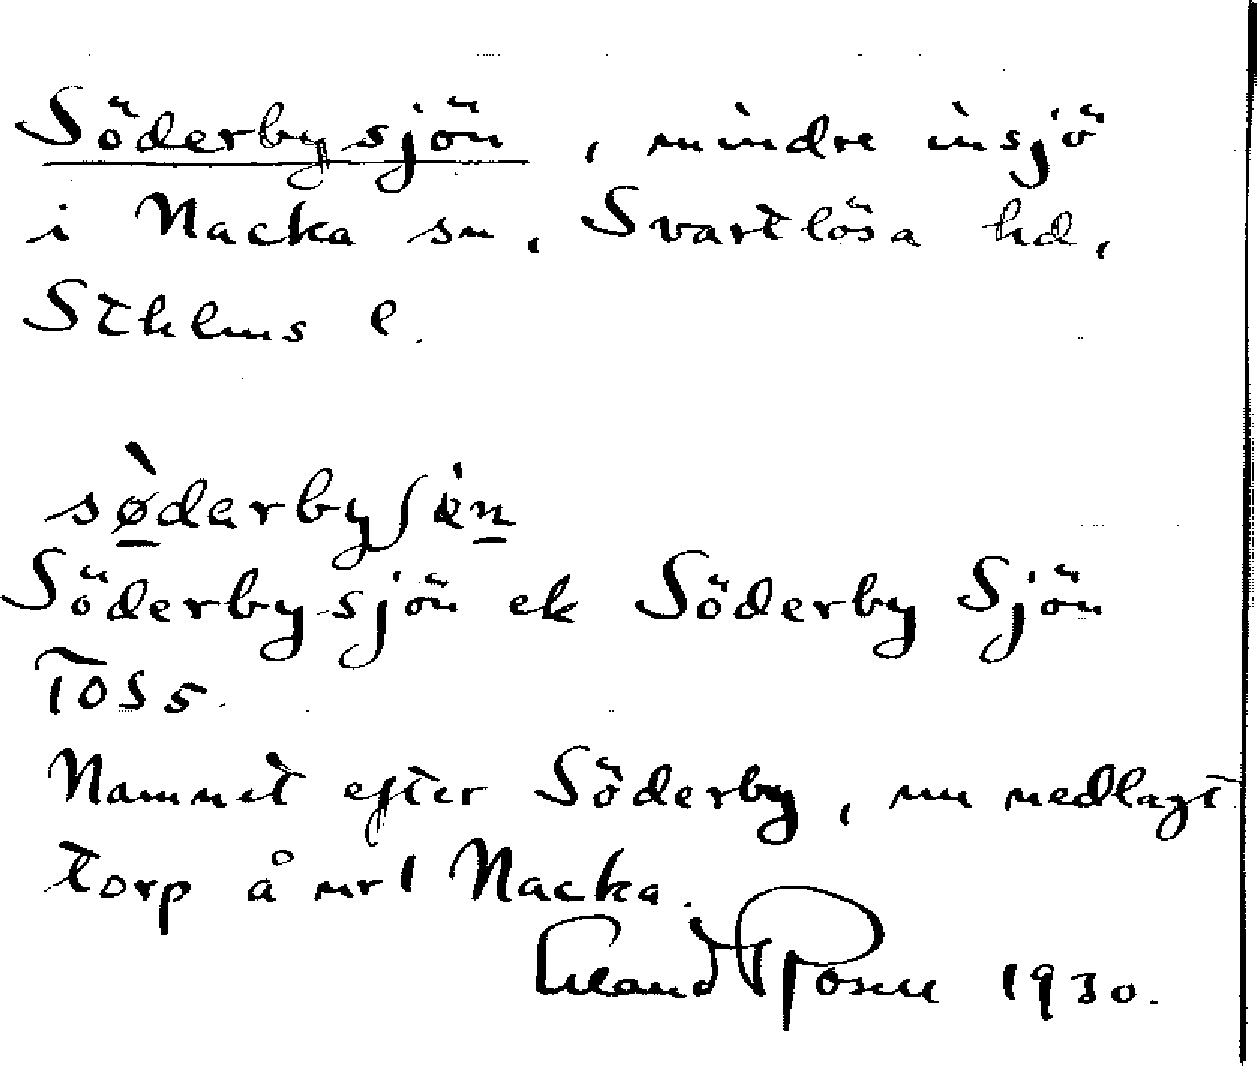 Söderbysjön, mindre insjö
i Nacka sn, Svartlösa hd,
Sthlms l.
sø̀derbyʃɨ̇n
Söderbysjön ek Söderby Sjön
TOS 5.
Namnet efter Söderby, nu nedlagt
torp å nr 1 Nacka.
Erland Rosell 1930.